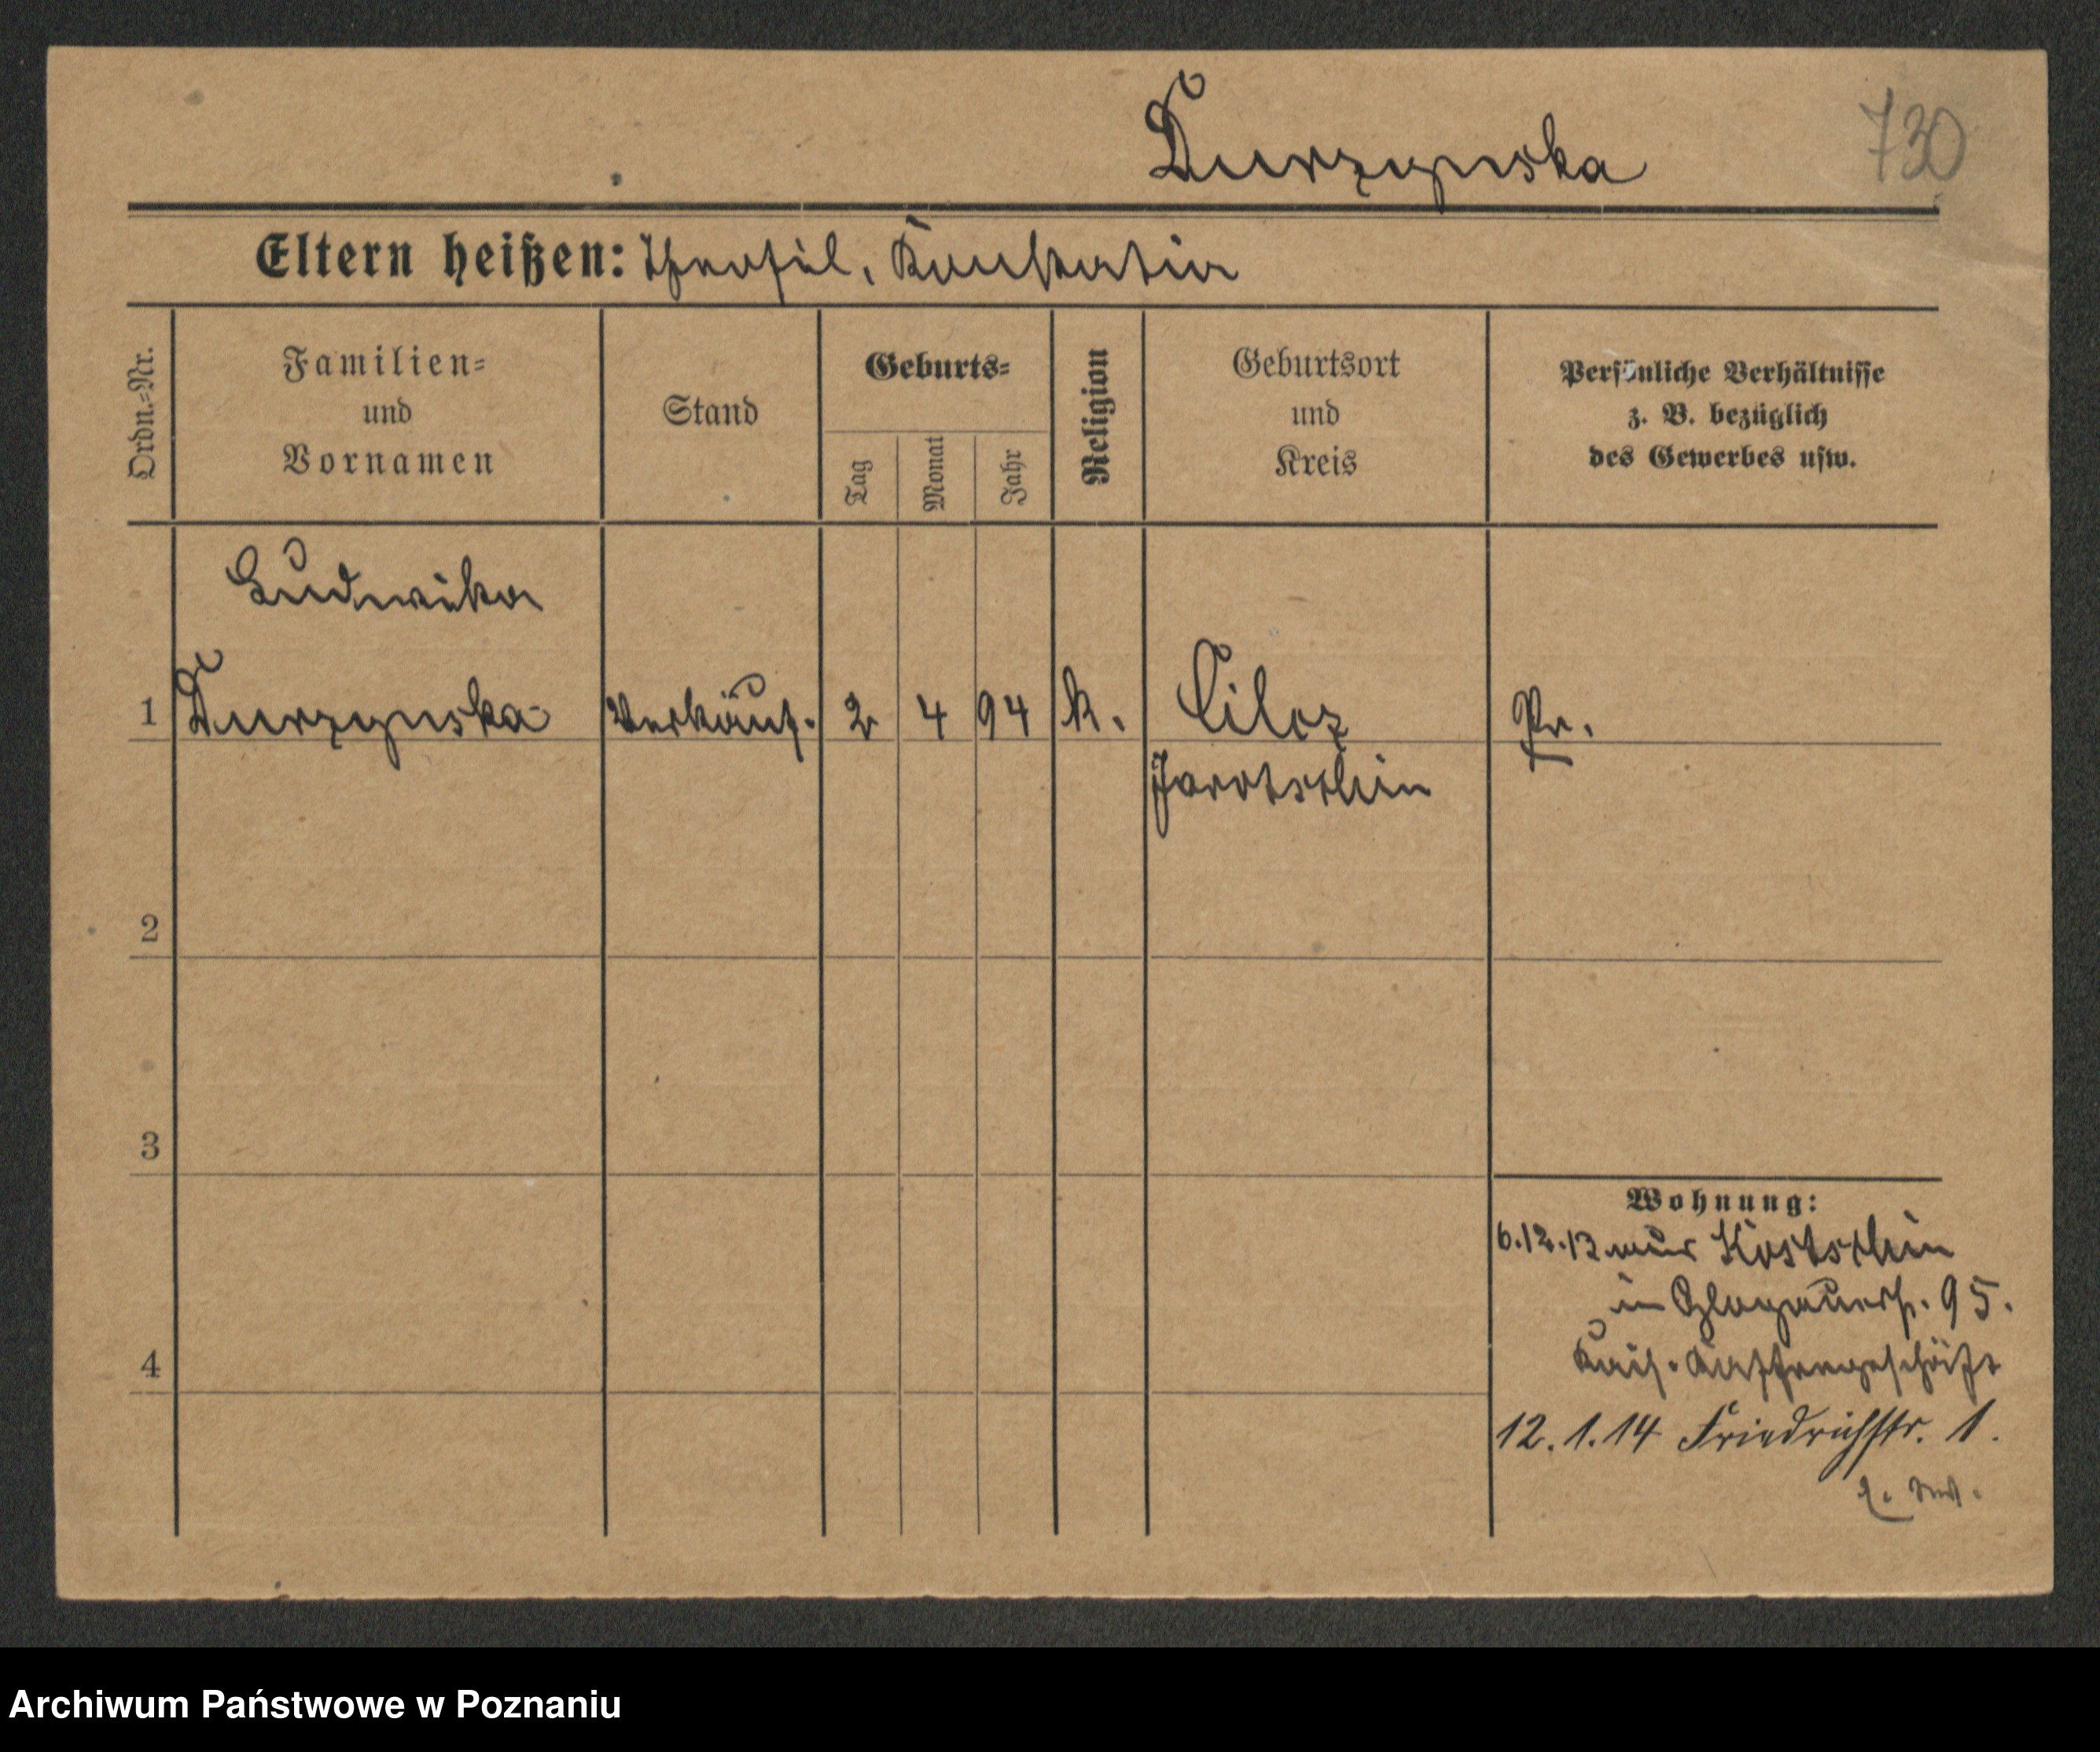 Durzynska
730
Eltern heißen: Theofil, Konstantia
Ordn.-Nr.
Familien-
und
Vornamen
Stand
Geburts-
Tag
Monat
Jahr
Religion
Geburtsort
und
Kreis
Persönliche Verhältnisse
z. B. bezüglich
des Gewerbes usw.
Ludwika
1 Durzynska Verkäuf. 2 4 94 k. Cilcz Pr.
Jarotschin
2
3
4
Wohnung:
6.12.13 aus Kostschin
in Glogauerst. 95.
Kais. Kaffeegeschäft
12.1.14 Friedrichstr. 1.
Archiwum Państwowe w Poznaniu